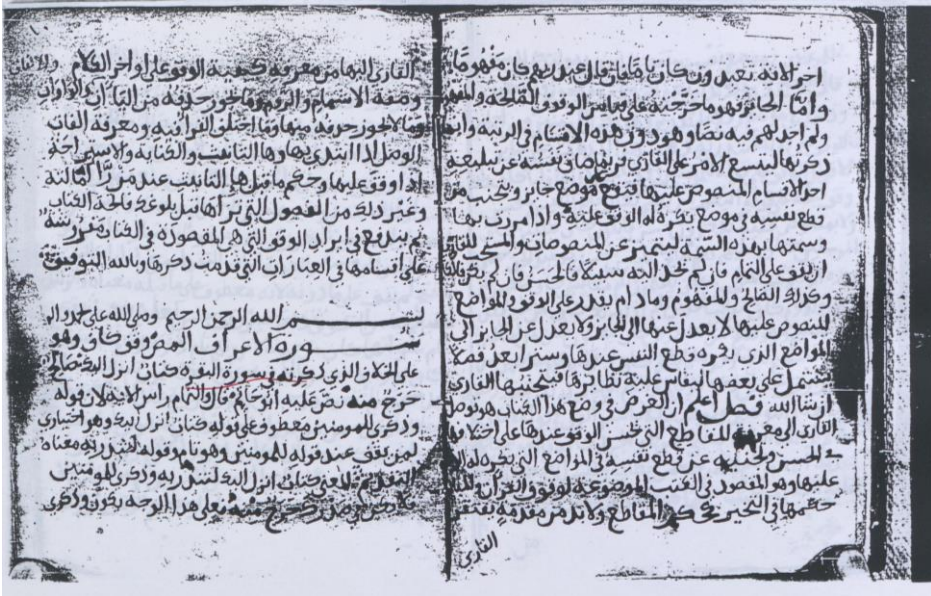 اخر الاية بعيد وان كان ما يتعلق قال عندهم كان مفهوما
وأما الجائز فهو ما خرجته على مقاييس الوقوف الصالحة والمفهومة
ولم اجد لهم فيه نصا وهو دون هذه الاقسام في الرتبة وانما
ذكرتها ليتسع الامر على القارئ فربما ضاق نفسه عن تبليغه
احد الاقسام المنصوص عليها فيقع موضع جائز ويتجنب من
قطع نفسه في موضع يكره له الوقف عليه واذا مررت بها
وسمتها بهذه السمة ليتميز عن المنصوصات والمستحب للقارئ
ان يقف على التمام فان لم يجد اليه سبيلا فالحسن فان لم يكن فالكافي
وكذلك الصالح والمفهوم وما دام يقدر على الوقف والمواضع
المنصوص عليها لا يعدل عنها الى الجائز ولا يعدل عن الجائز الى
المواضع الذي يكره قطع النفس عندها وسترا بعد فصلا
يشتمل على بعضها ليقاس عليه نظائرها فيتجنبها القارئ
ان شا الله فصل اعلم ان الغرض في وضع هذا الكتاب هو توصل
القارئ الى معرفة المقاطع التي يحسن الوقف عندها على اختلافها
في الحسن وتجنبه عن قطع نفسه في المواضع التي يكره له الوقف
عليها وهو المقصود في الكتب الموضوعة لوقوف القرآن
حقهما في التحبير في ذكر المقاطع ولا بد من مقدمة يفتقر
القارئ
القارئ اليها من معرفة كيفية الوقف على اواخر الكلام
وصفة الاشمام والروم وما يجوز حذفه من الياءات والواوات
وما لا يجوز حذفه منها وما اختلف القراء فيه ومعرفة الفات
الوصل اذا ابتدئ بها وهاء التانيث والكناية والاستراحة
اذا وقف عليها وحكم ما قبل هاء التانيث عند من را امالته
وغير ذلك من الفصول التي تراها قبل بلوغ فاتحة الكتاب
ثم يندفع في ايراد الوقوف التي هي المقصودة في الكتاب مرتبة
على اقسامها في العبارات التي قدمت ذكرها وبالله التوفيق
بسم الله الرحمن الرحيم وصلى الله على محمد واله
سورة الاعراف المص وقف كاف وهو
على الخلاف الذي ذكرته في سورة البقرة كتاب انزل اليك صالح
حرج منه نص عليه ابو حاتم قال والتمام راس الاية لان قوله
وذكرى للمومنين معطوف على قوله كتاب انزل اليك وهو اختياري
لمن يقف عند قوله للمومنين وهو تام وقوله لتنذر به معناه
التقديم المعنى كتاب انزل اليك لتنذر به وذكرى للمومنين
فلا يكن في صدرك حرج منه فعلى هذا الوجه يكون وذكرى